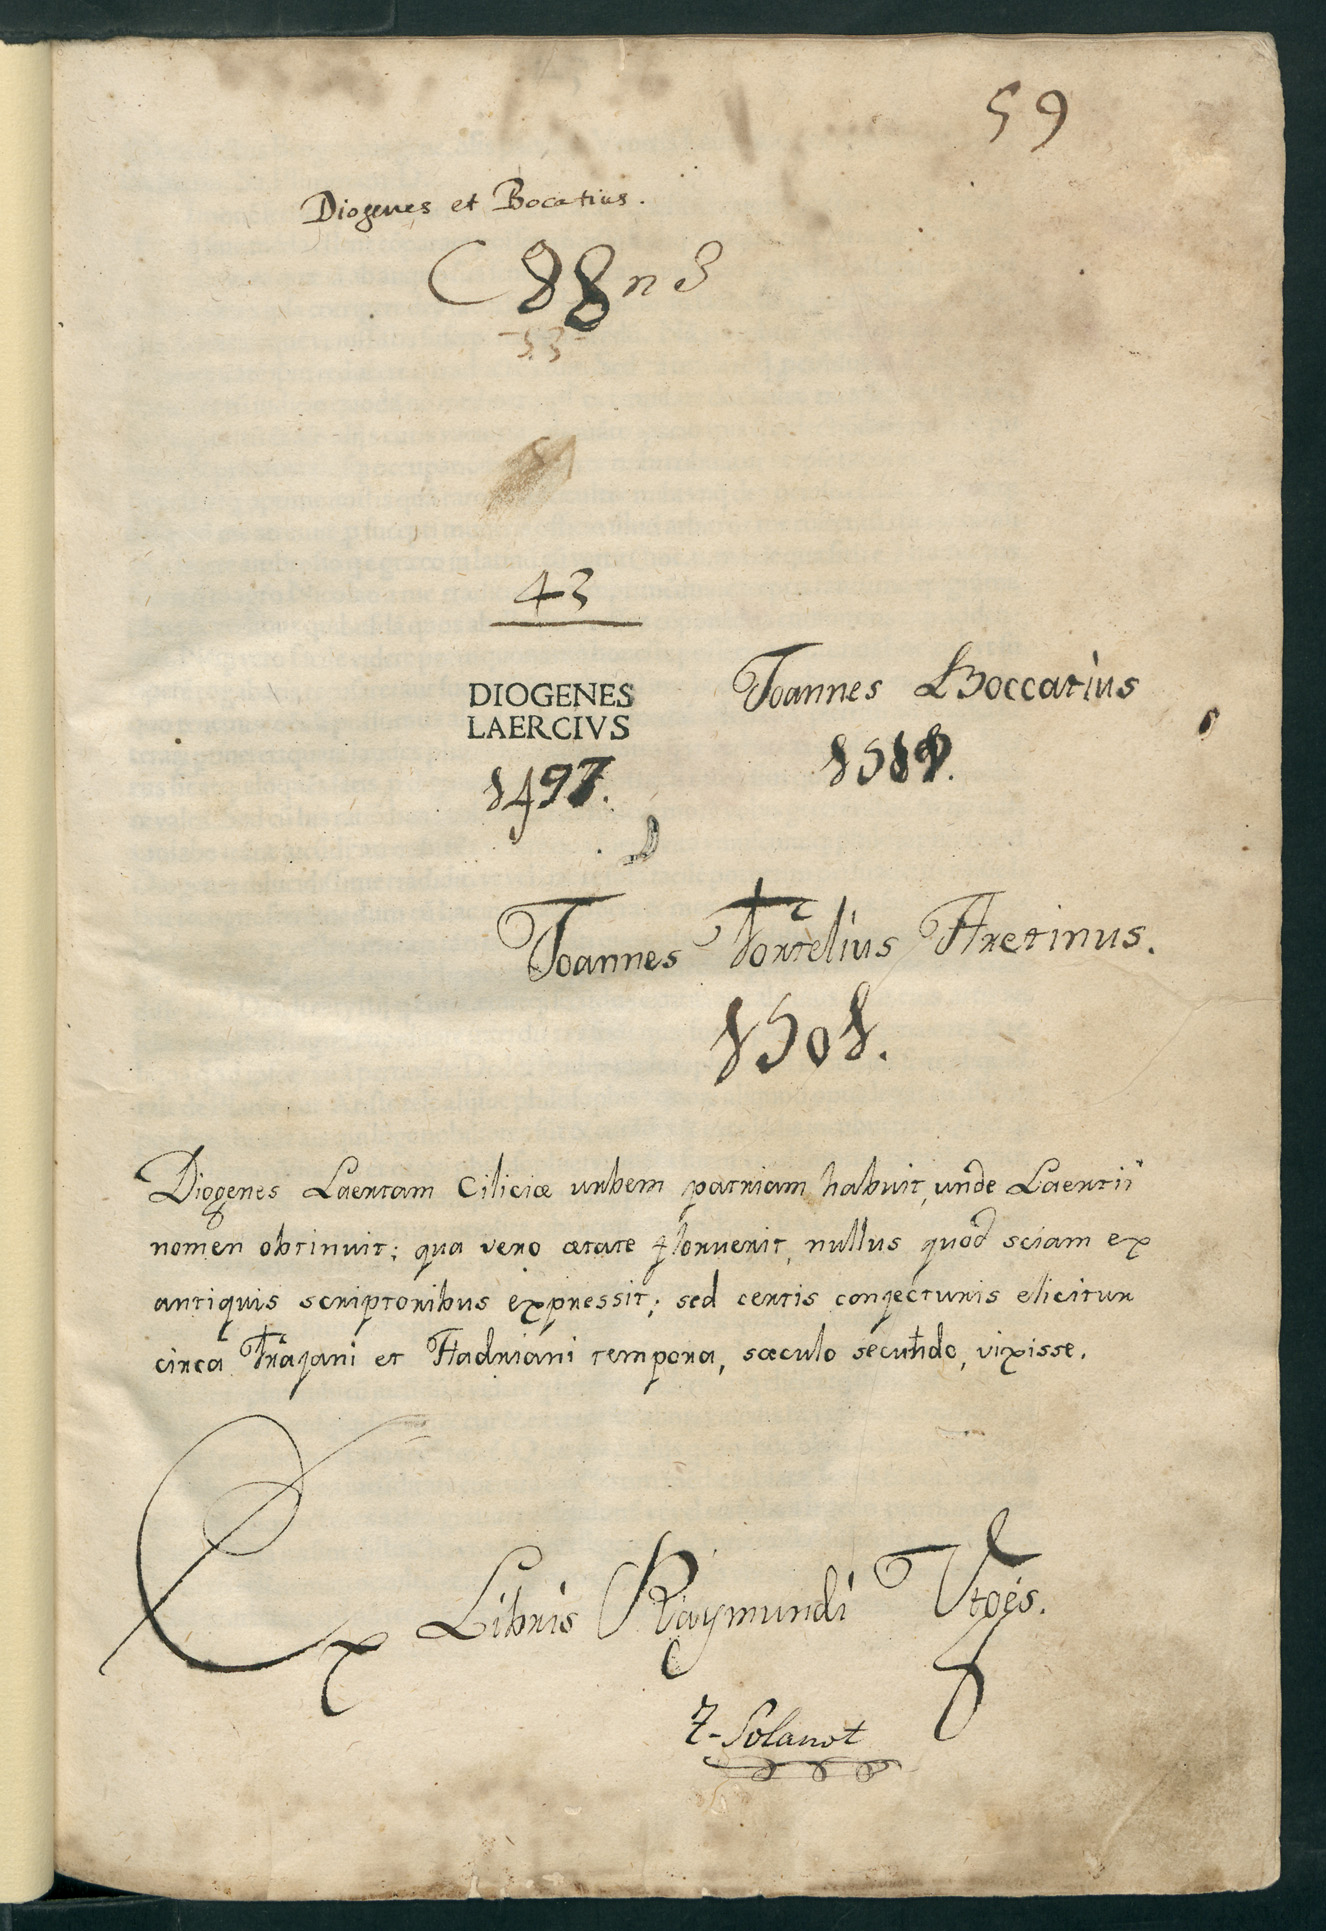 59
Diogenes et Bocatius.
C 88 n 3
-53-
43
DIOGENES
LAERCIVS
1497.
Joannes Boccatius
1511.
Joannes Tortelius Aretinus.
1501.
Diogenes Laertam Ciliciæ urbem patriam habuit, unde Laertii
nomen obtinuit; qua vero ætate floruerit, nullus quod sciam ex
antiquis scriptoribus expressit; sed certis conjecturis elicitur
circa Trajani et Hadriani tempora, sæculo secundo, vixisse.
Ex Libris Raymundi
Solanot